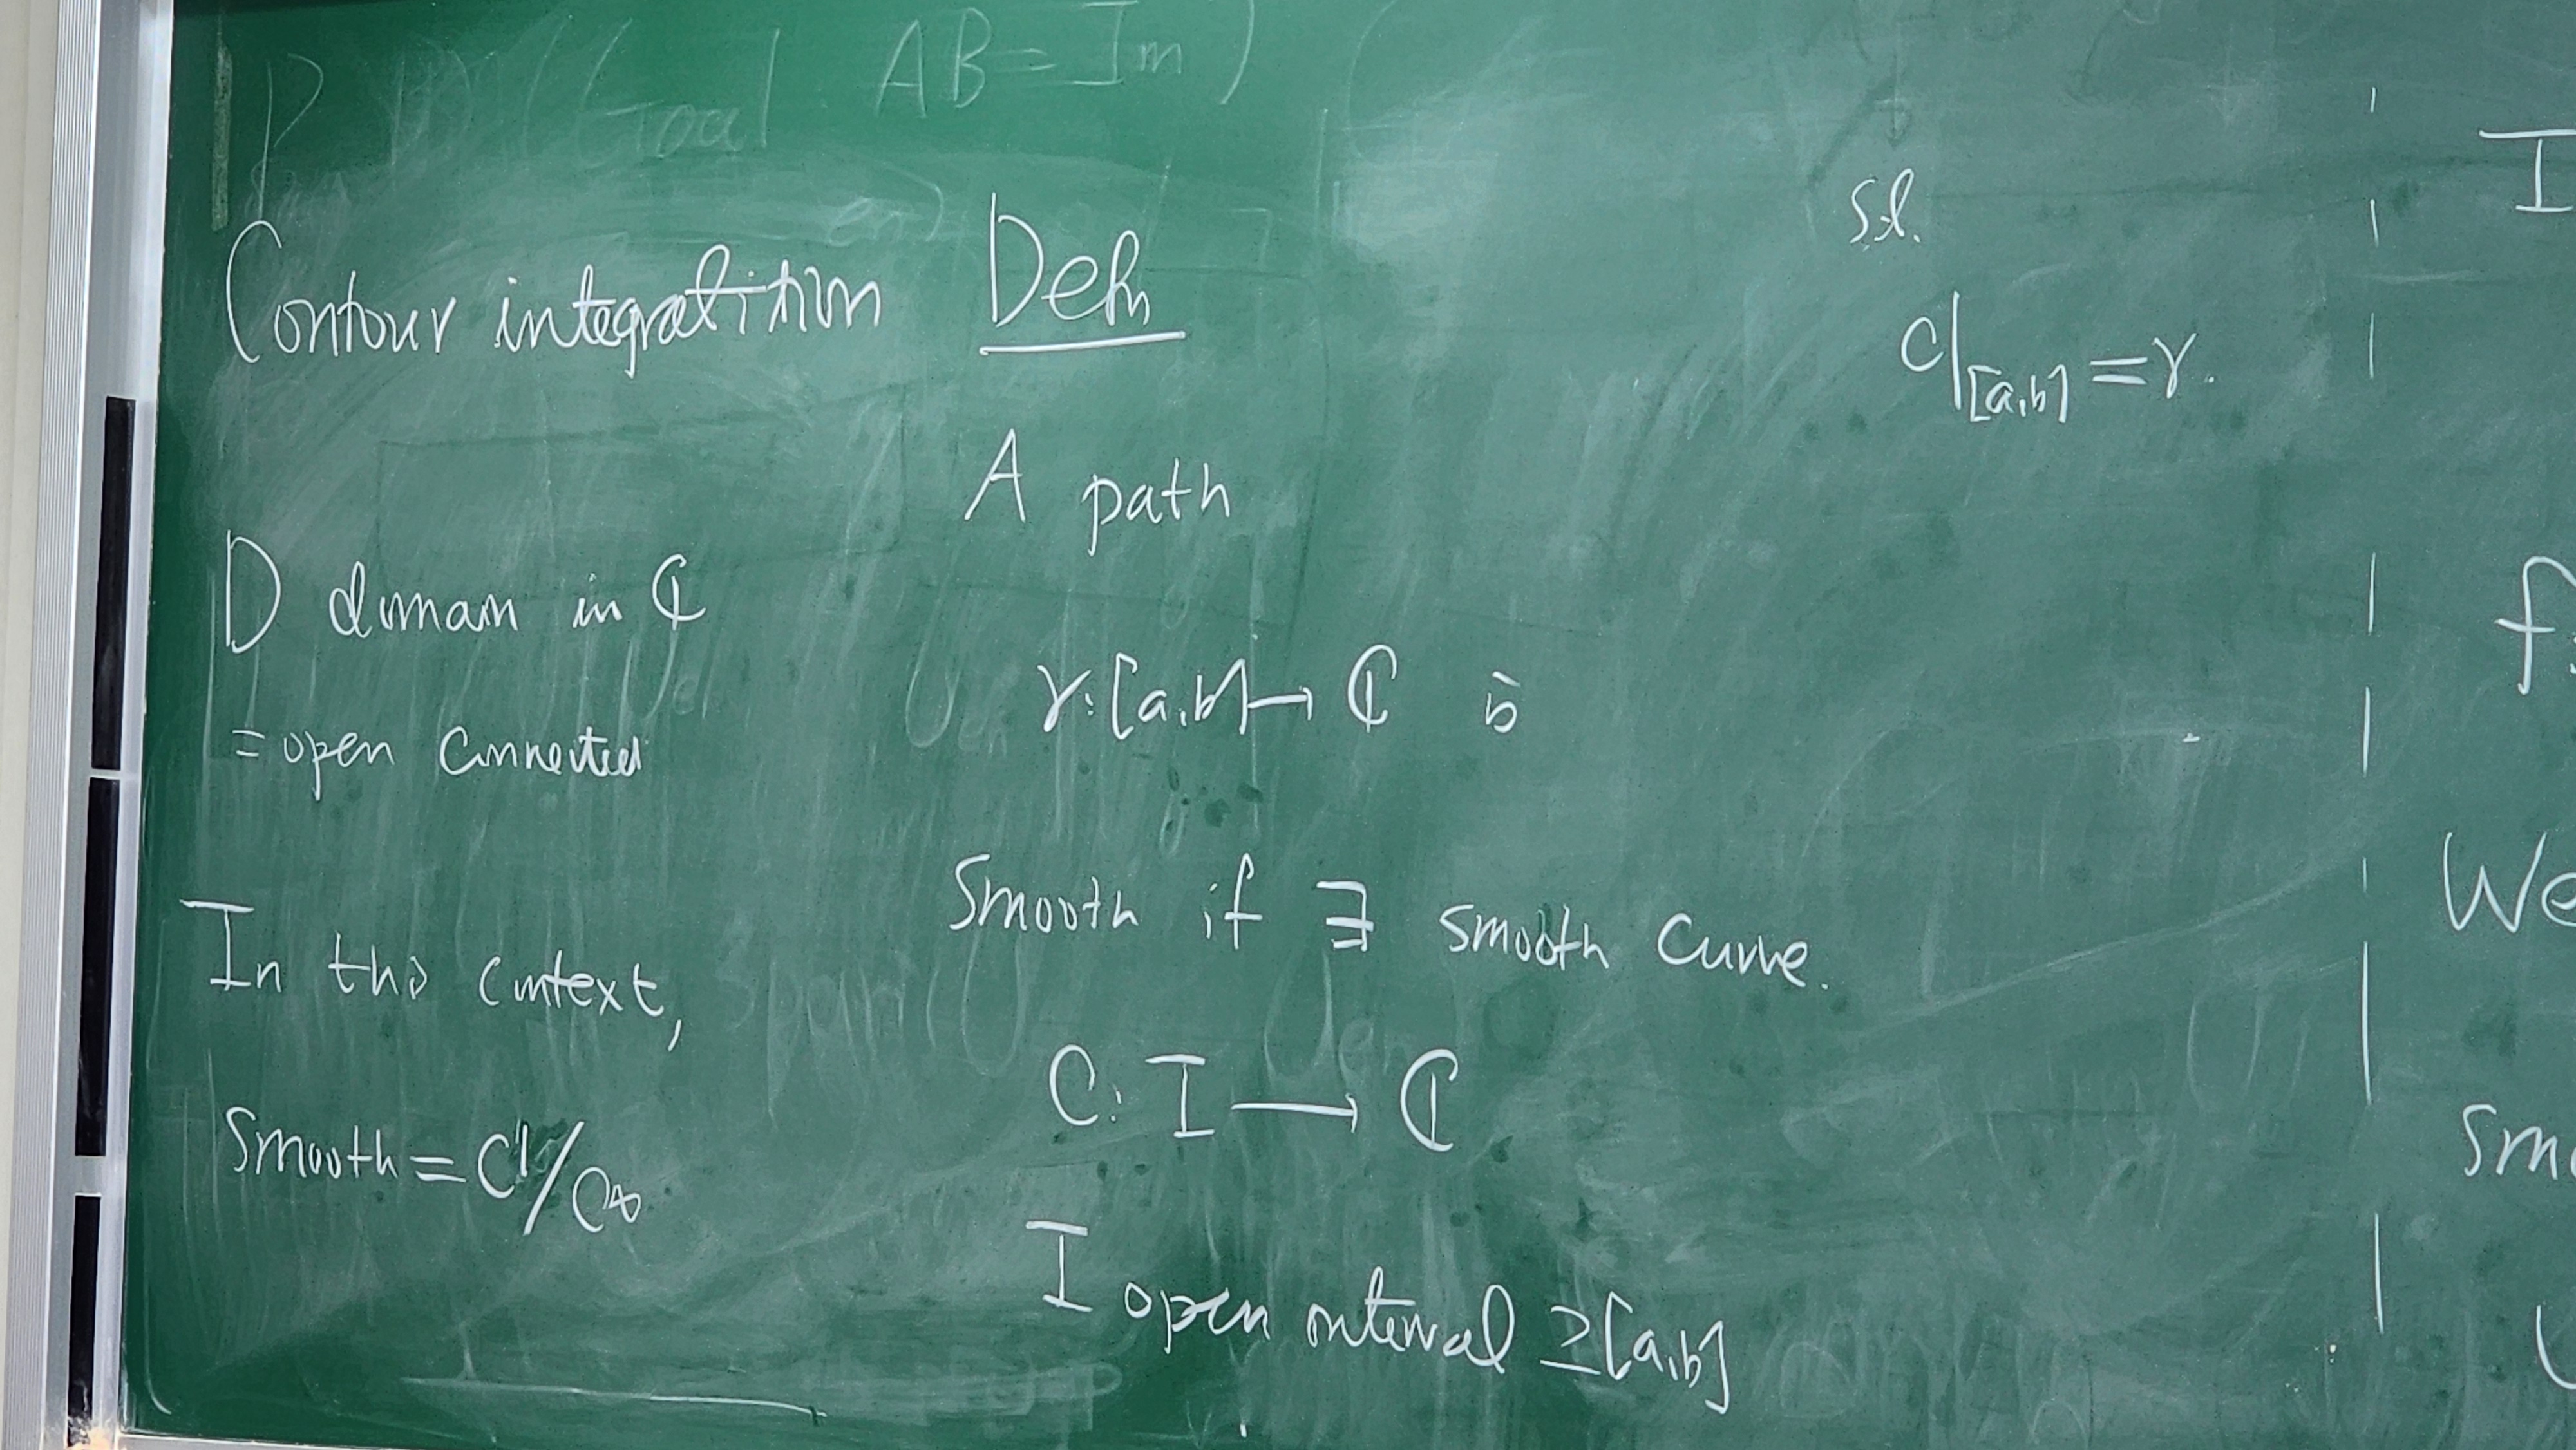 (Goal AB = Im)
Contour integratition
D domain in ℂ
= open connected
In this context,
Smooth = C¹/C∞
Defn
A path
γ: [a,b] → ℂ is
Smooth if ∃ smooth curve.
C: I → ℂ
I open interval ⊇ [a,b]
s.t.
C|[a,b] = γ.
I
f:
We
Smo